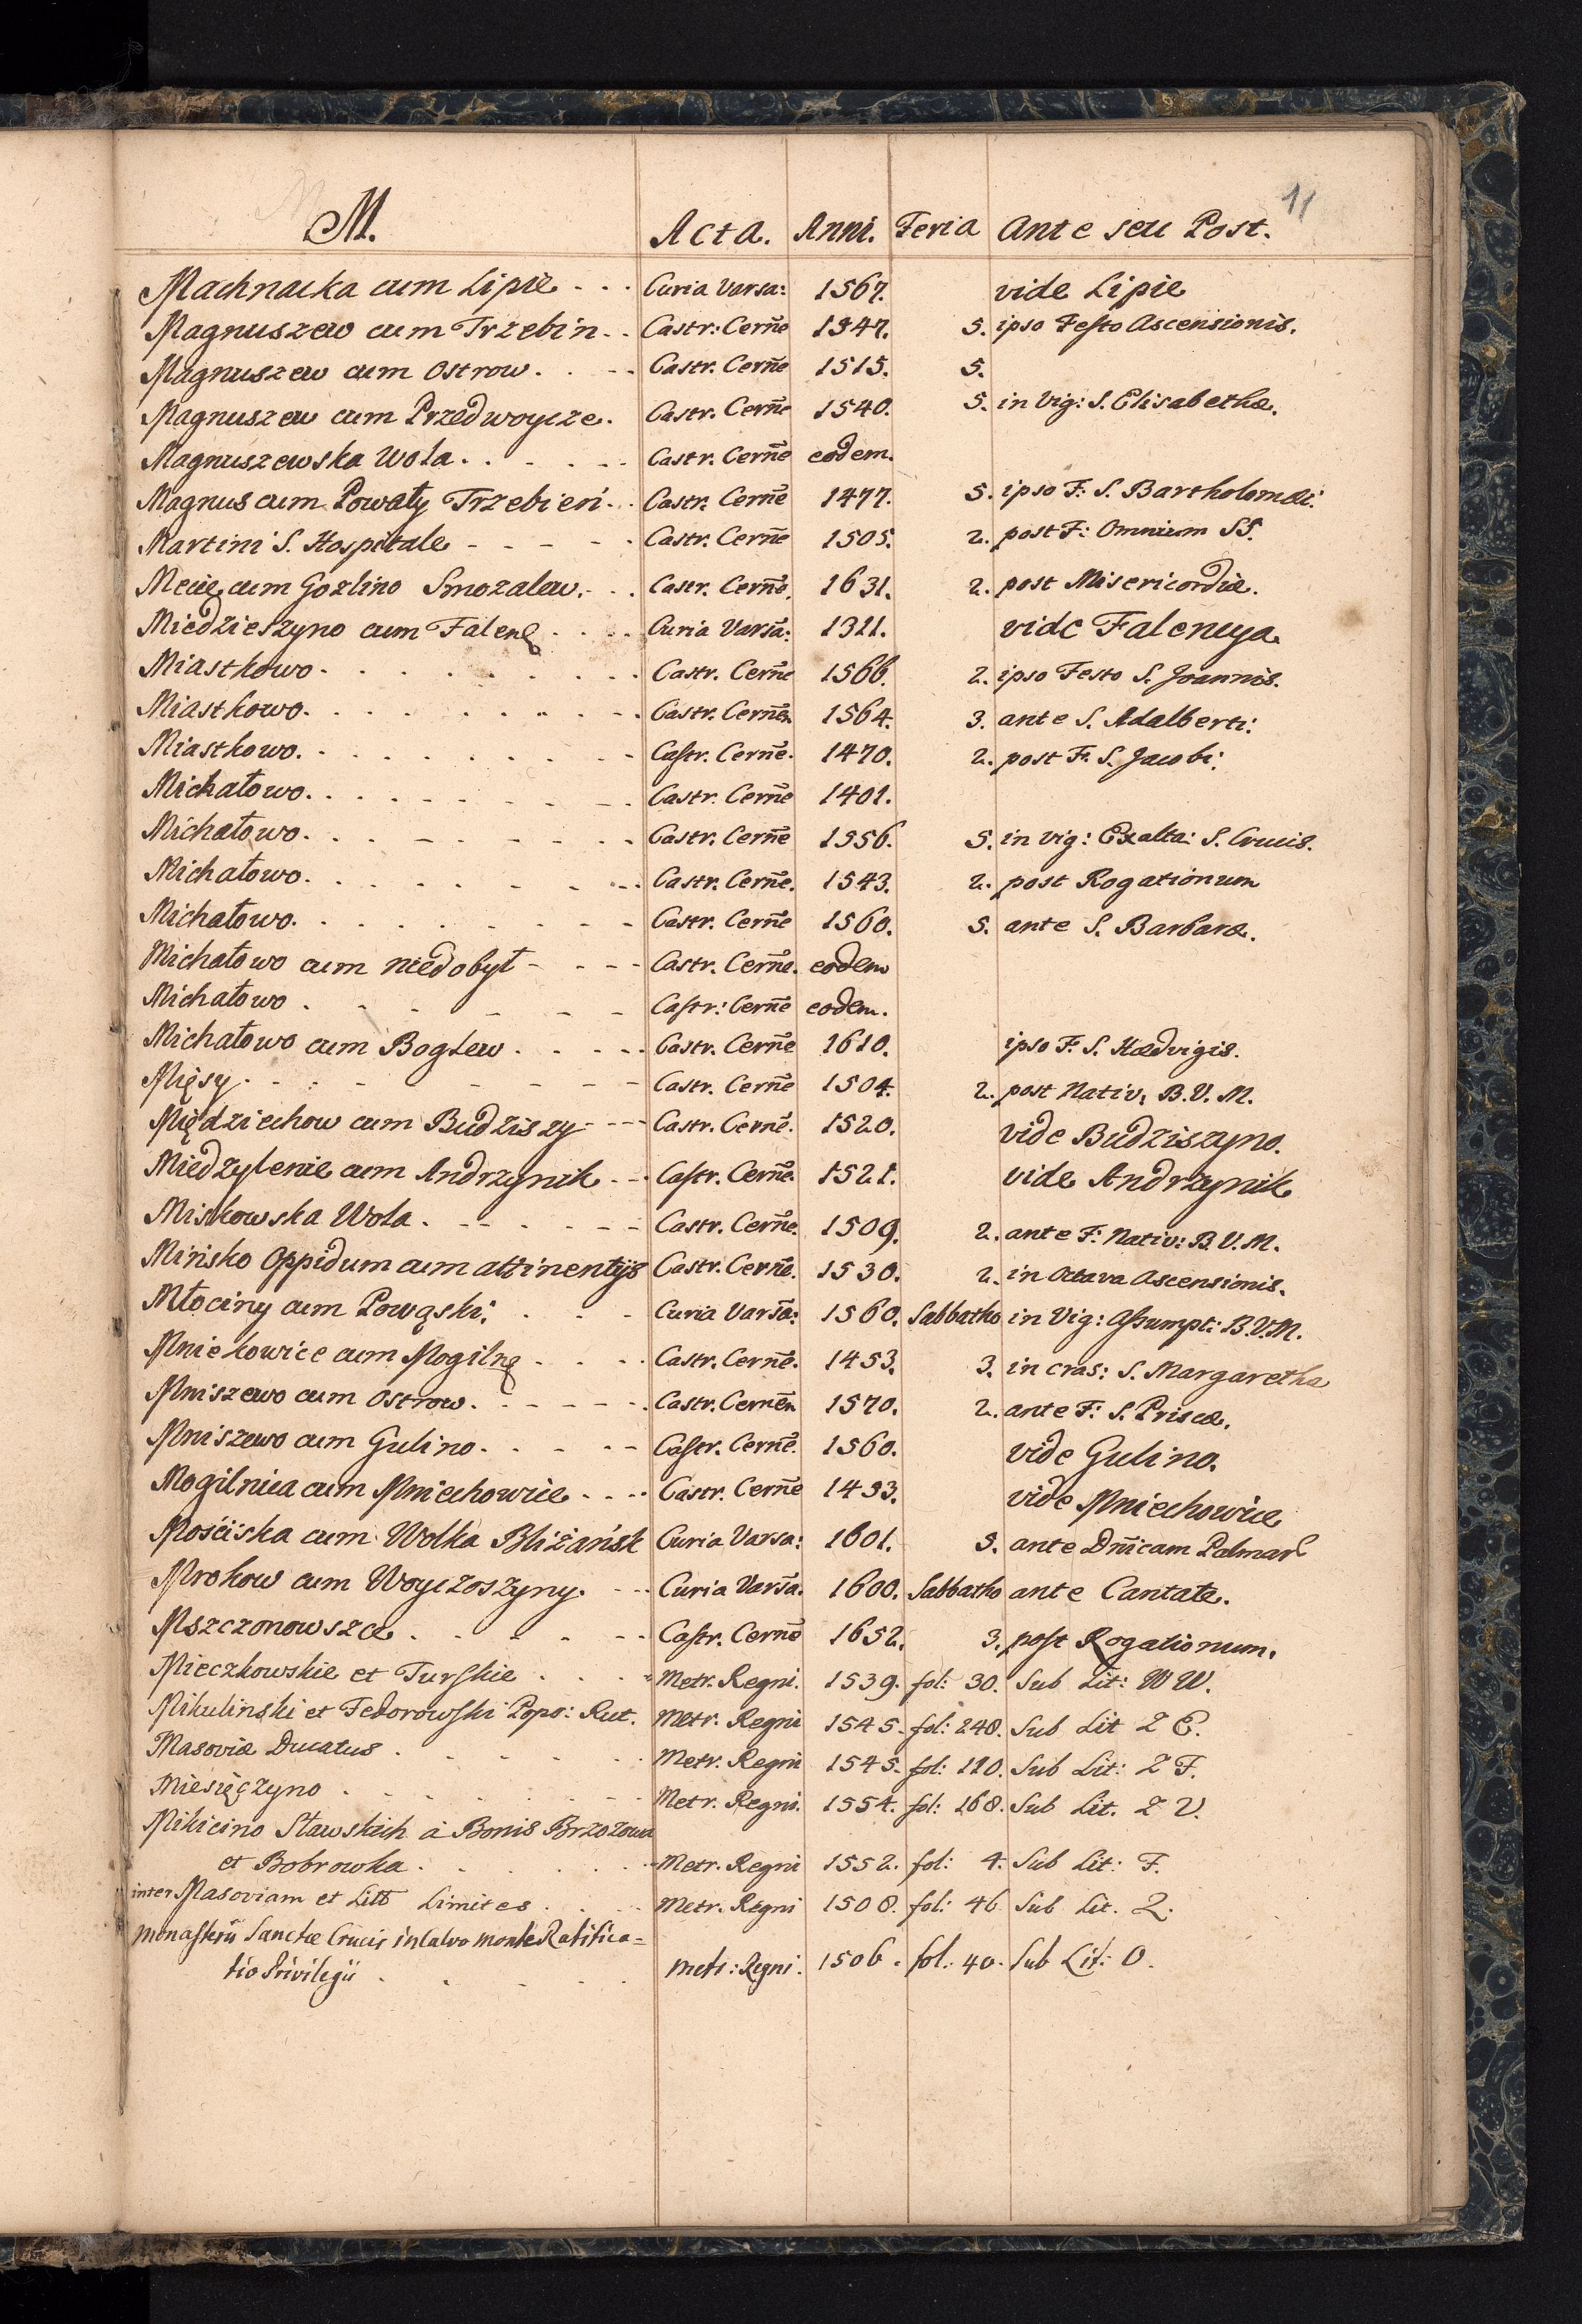 11
M. Acta. Anni. Feria Ante seu Post.
Machnacka cum Lipie - - - Curia Varsa: 1567. vide Lipie
Magnuszew cum Trzebin - - Castr: Cerñe 1547. 5. ipso Festo Ascensionis.
Magnuszew cum Ostrow. . - - Castr. Cerñe 1515. 5.
Magnuszew cum Przedwoycze. Castr. Cerñe 1540. 5. in Vig: S. Elisabethæ.
Magnuszewska Wola. . . . - - Castr. Cerñe eodem.
Magnus cum Powały Trzebień. . . Castr. Cerñe 1477. 5. ipso F: S. Bartholomæi.
Martini S. Hospitale - - - - - Castr. Cerñe 1505. 2. post F: Omnium SS.
Mecie cum Gozlino Smozalew. - . Castr. Cerñe. 1631. 2. post Misericordiæ.
Miedzieszyno cum Falenę . . . . Curia Varsa: 1321. vide Falencya
Miastkowo. . . . . . . . . Castr. Cerñe 1566. 2. ipso Festo S. Joannis.
Miastkowo. . . . . . . . . Castr. Cerñen 1564. 3. ante S. Adalberti.
Miastkowo. . . . . . . . - Castr. Cerñe. 1470. 2. post F. S. Jacobi.
Michałowo. . . . . . . . . Castr. Cerñe 1401.
Michałowo. . . - . - - - - Castr. Cerñe 1556. 5. in vig: Exalta: S. Crucis.
Michałowo. . . . . - - - - Castr. Cerñe. 1543. 2. post Rogationum
Michałowo. . . . . . . - - Castr. Cerñe 1560. 5. ante S. Barbaræ.
Michałowo cum niedobył - - - - Castr. Cerñe. eodem
Michałowo . . - - - - - Castr: Cerñe eodem.
Michałowo cum Boglew . . . - . Castr. Cerñe 1610. ipso F. S. Hædvigis.
Mięsy. - . - - - - - - Castr. Cerñe 1504. 2. post Nativ: B. V. M.
Międziechow cum Budziszy - - - - Castr. Cerñe. 1520. vide Budziszyno.
Miedzylenie cum Andrzynik - - . Castr. Cerñe. 1521. vide Andrzynik
Miskowska Wola . - - . - - - Castr. Cerñe. 1509. 2. ante F: Nativ: B. V. M.
Mińsko Oppidum cum attinentijs Castr. Cerñe. 1530. 2. in Octava Ascensionis.
Młociny cum Powąski. . . - Curia Varsa: 1560. Sabbatho in Vig: Assumpt: B.V.M.
Mniekowice cum Mogilnę . . . . Castr. Cerñe. 1453. 3. in cras: S. Margaretha
Mniszewo cum Ostrow. - - - - - . Castr. Cerñen 1570. 2. ante F: S. Priscæ.
Mniszewo cum Gulino. . . . - - Castr. Cerñe. 1560. vide Gulino.
Mogilnica cum Mniechowice . . . . Castr. Cerñe 1493. vide Mniechowice
Mościska cum Wolka Bliżańsk Curia Varsa: 1601. 5. ante Dñicam Palmar
Mrokow cum Woyczoszyny. - - . Curia Varsa. 1600. Sabbatho ante Cantate.
Mszczonowszce . . . - . - - Castr. Cerñe 1652. 3. post Rogationum.
Mieczkowskie et Turskie . . . - Metr. Regni. 1539. fol: 30. Sub Lit: W W.
Mikulinski et Fedorowski Popo: Rut. Metr. Regni 1545. fol: 240. Sub Lit Z E.
Masoviæ Ducatus . . . . . . Metr. Regni 1545. fol: 110. Sub Lit: Z F.
Miesięczyno . . . . . - - - Metr. Regni. 1554. fol: 168. Sub Lit. Z V.
Mikicino Stawskich à Bonis Brzozowa
et Bobrowka . . . . . . . Metr. Regni 1552. fol: 4. Sub Lit: F.
inter Masoviam et Litt Limites . . . . Metr. Regni 1508. fol: 46 Sub Lit. Z.
Monasterii Sanctæ Crucis in Calvo monte Ratifica=
tio Privilegii . . . . . Metr: Regni. 1506. fol: 40. Sub Lit: O.